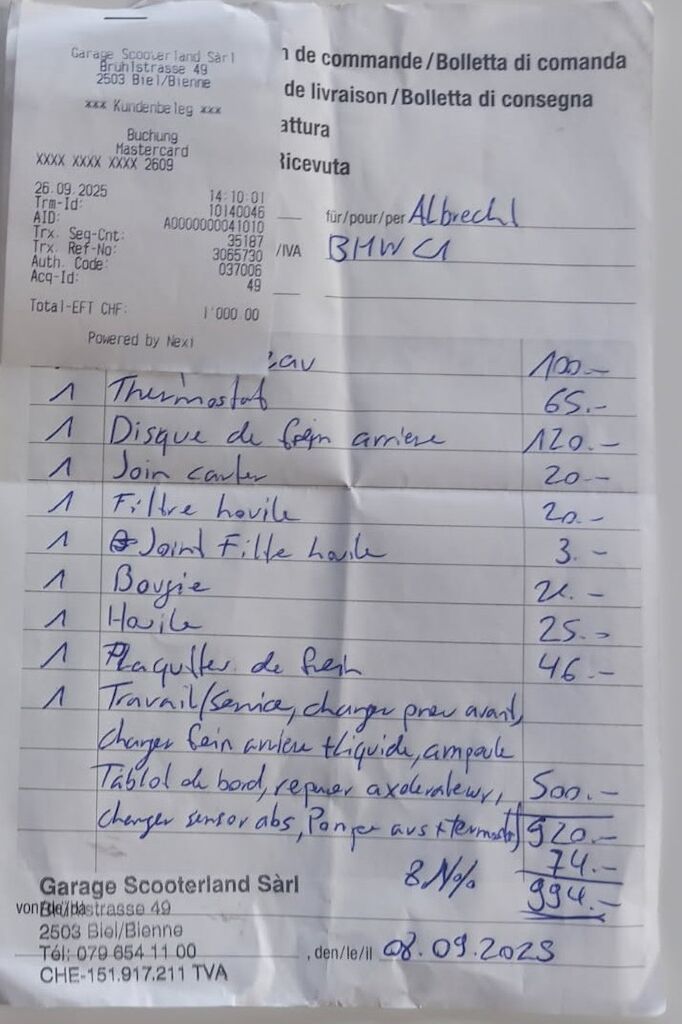 Garage Scooterland Sàrl
Brühlstrasse 49
2503 Biel/Bienne
xxx Kundenbeleg xxx
Buchung
Mastercard
XXXX XXXX XXXX 2609
26.09.2025 14:10:01
Trm-Id: 10140046
AID: A0000000041010
Trx. Seq-Cnt: 35187
Trx. Ref-No: 3065730
Auth. Code: 037006
Acq-Id: 49
Total-EFT CHF: 1'000.00
Powered by Nexi
n de commande/Bolletta di comanda
de livraison/Bolletta di consegna
attura
Ricevuta
für/pour/per Albrecht
/IVA BMW C1
eau 100.-
1 Thermostat 65.-
1 Disque de frein arriere 120.-
1 Join carter 20.-
1 Filtre houile 20.-
1 Joint Filte houile 3.-
1 Bougie 21.-
1 Houile 25.-
1 Plaquttes de frein 46.-
1 Travail/Service, changer pneu avant,
changer frein arriere + liquide, ampoule
Tablot de bord, reparer axelerateur, 500.-
changer sensor abs, Pompe aus + termost 920.-
74.-
8.1% 994.-
Garage Scooterland Sàrl
von/de/da
Brühlstrasse 49
2503 Biel/Bienne
Tél: 079 654 11 00 , den/le/il 08.09.2025
CHE-151.917.211 TVA